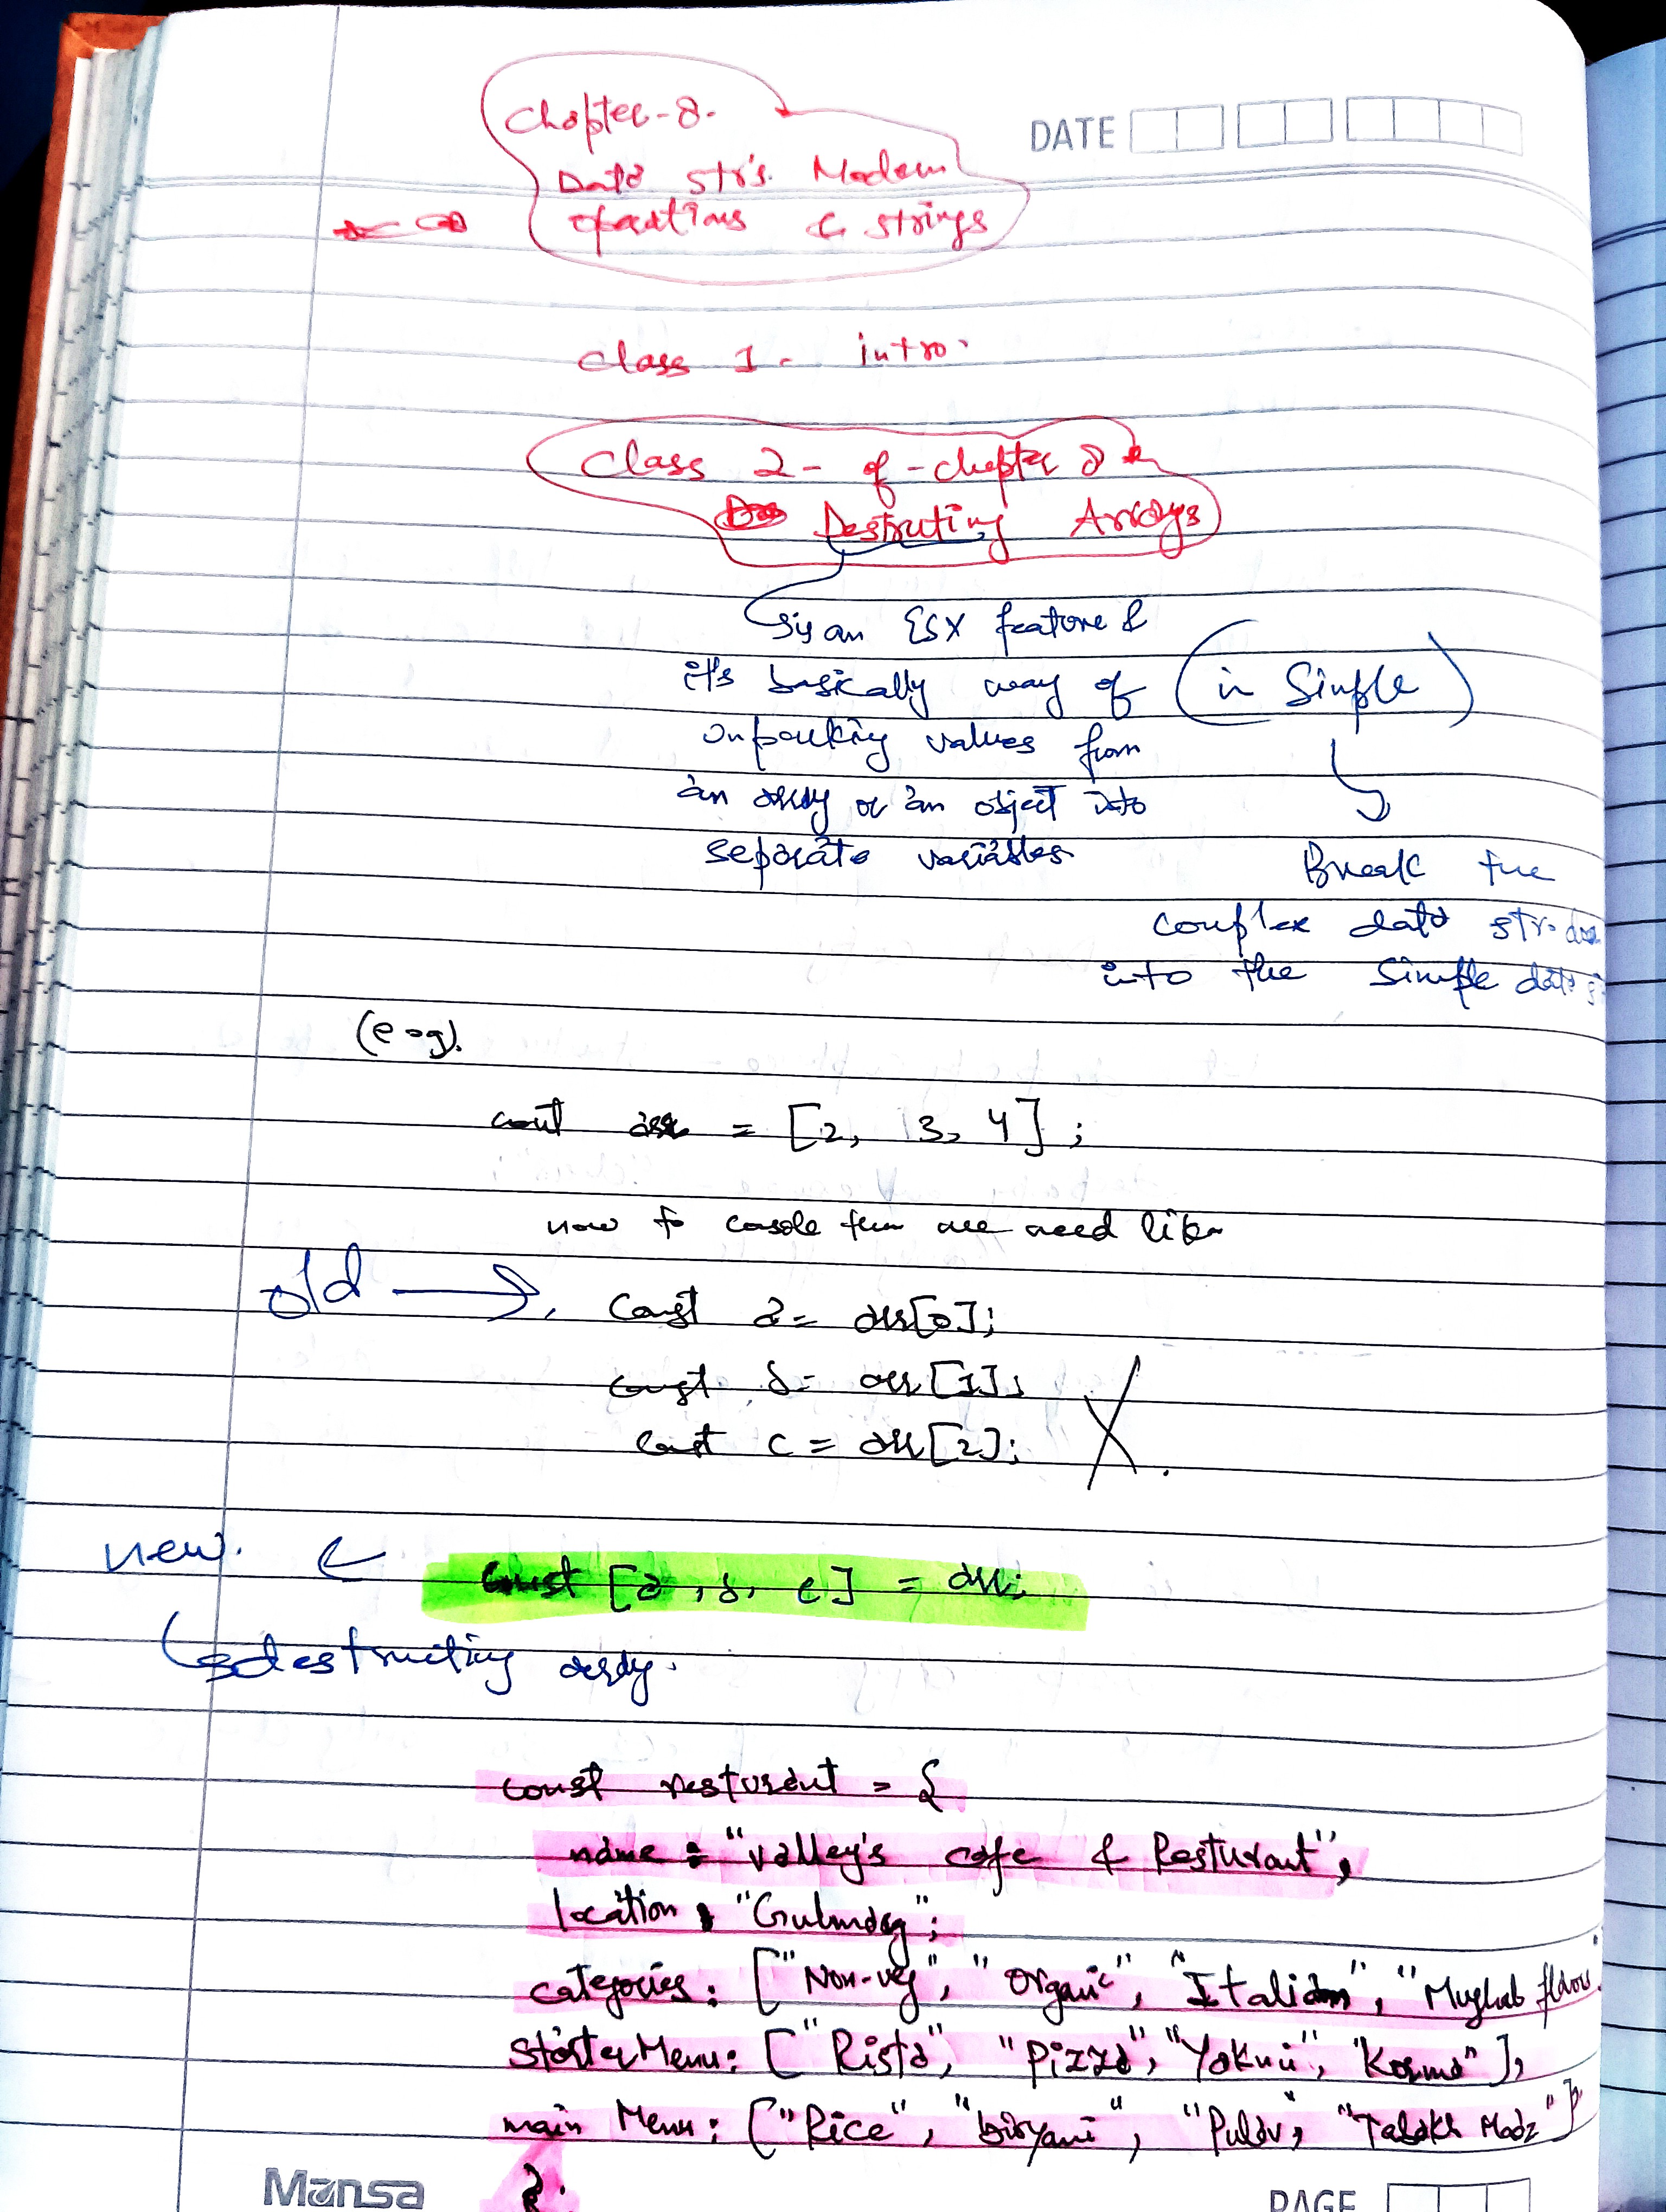 DATE
Chapter-8.
Data str's. Modern
operations & strings
class 1 - intro.
Class 2 - of - chapter 8
Destructing Arrays
is an ESX feature &
it's basically way of (in Simple)
unpacking values from
an array or an object into
separate variables.
Break the
complex data str.
into the Simple data
(e.g).
const arr = [2, 3, 4];
now to console them we need like
old → const a = arr[0];
const b = arr[1];
const c = arr[2];
new. const [a, b, c] = arr;
destructing array.
const resturant = {
name : "valley's cafe & Resturant",
location : "Gulmarg";
categories: ["Non-veg", "Organic", "Italian", "Mughab
starterMenu: ["Rista", "Pizza", "Yakuni", "Korma"],
main Menu: ["Rice", "biryani", "Pulav", "Tabakh Maaz"]
};
Mansa
PAGE